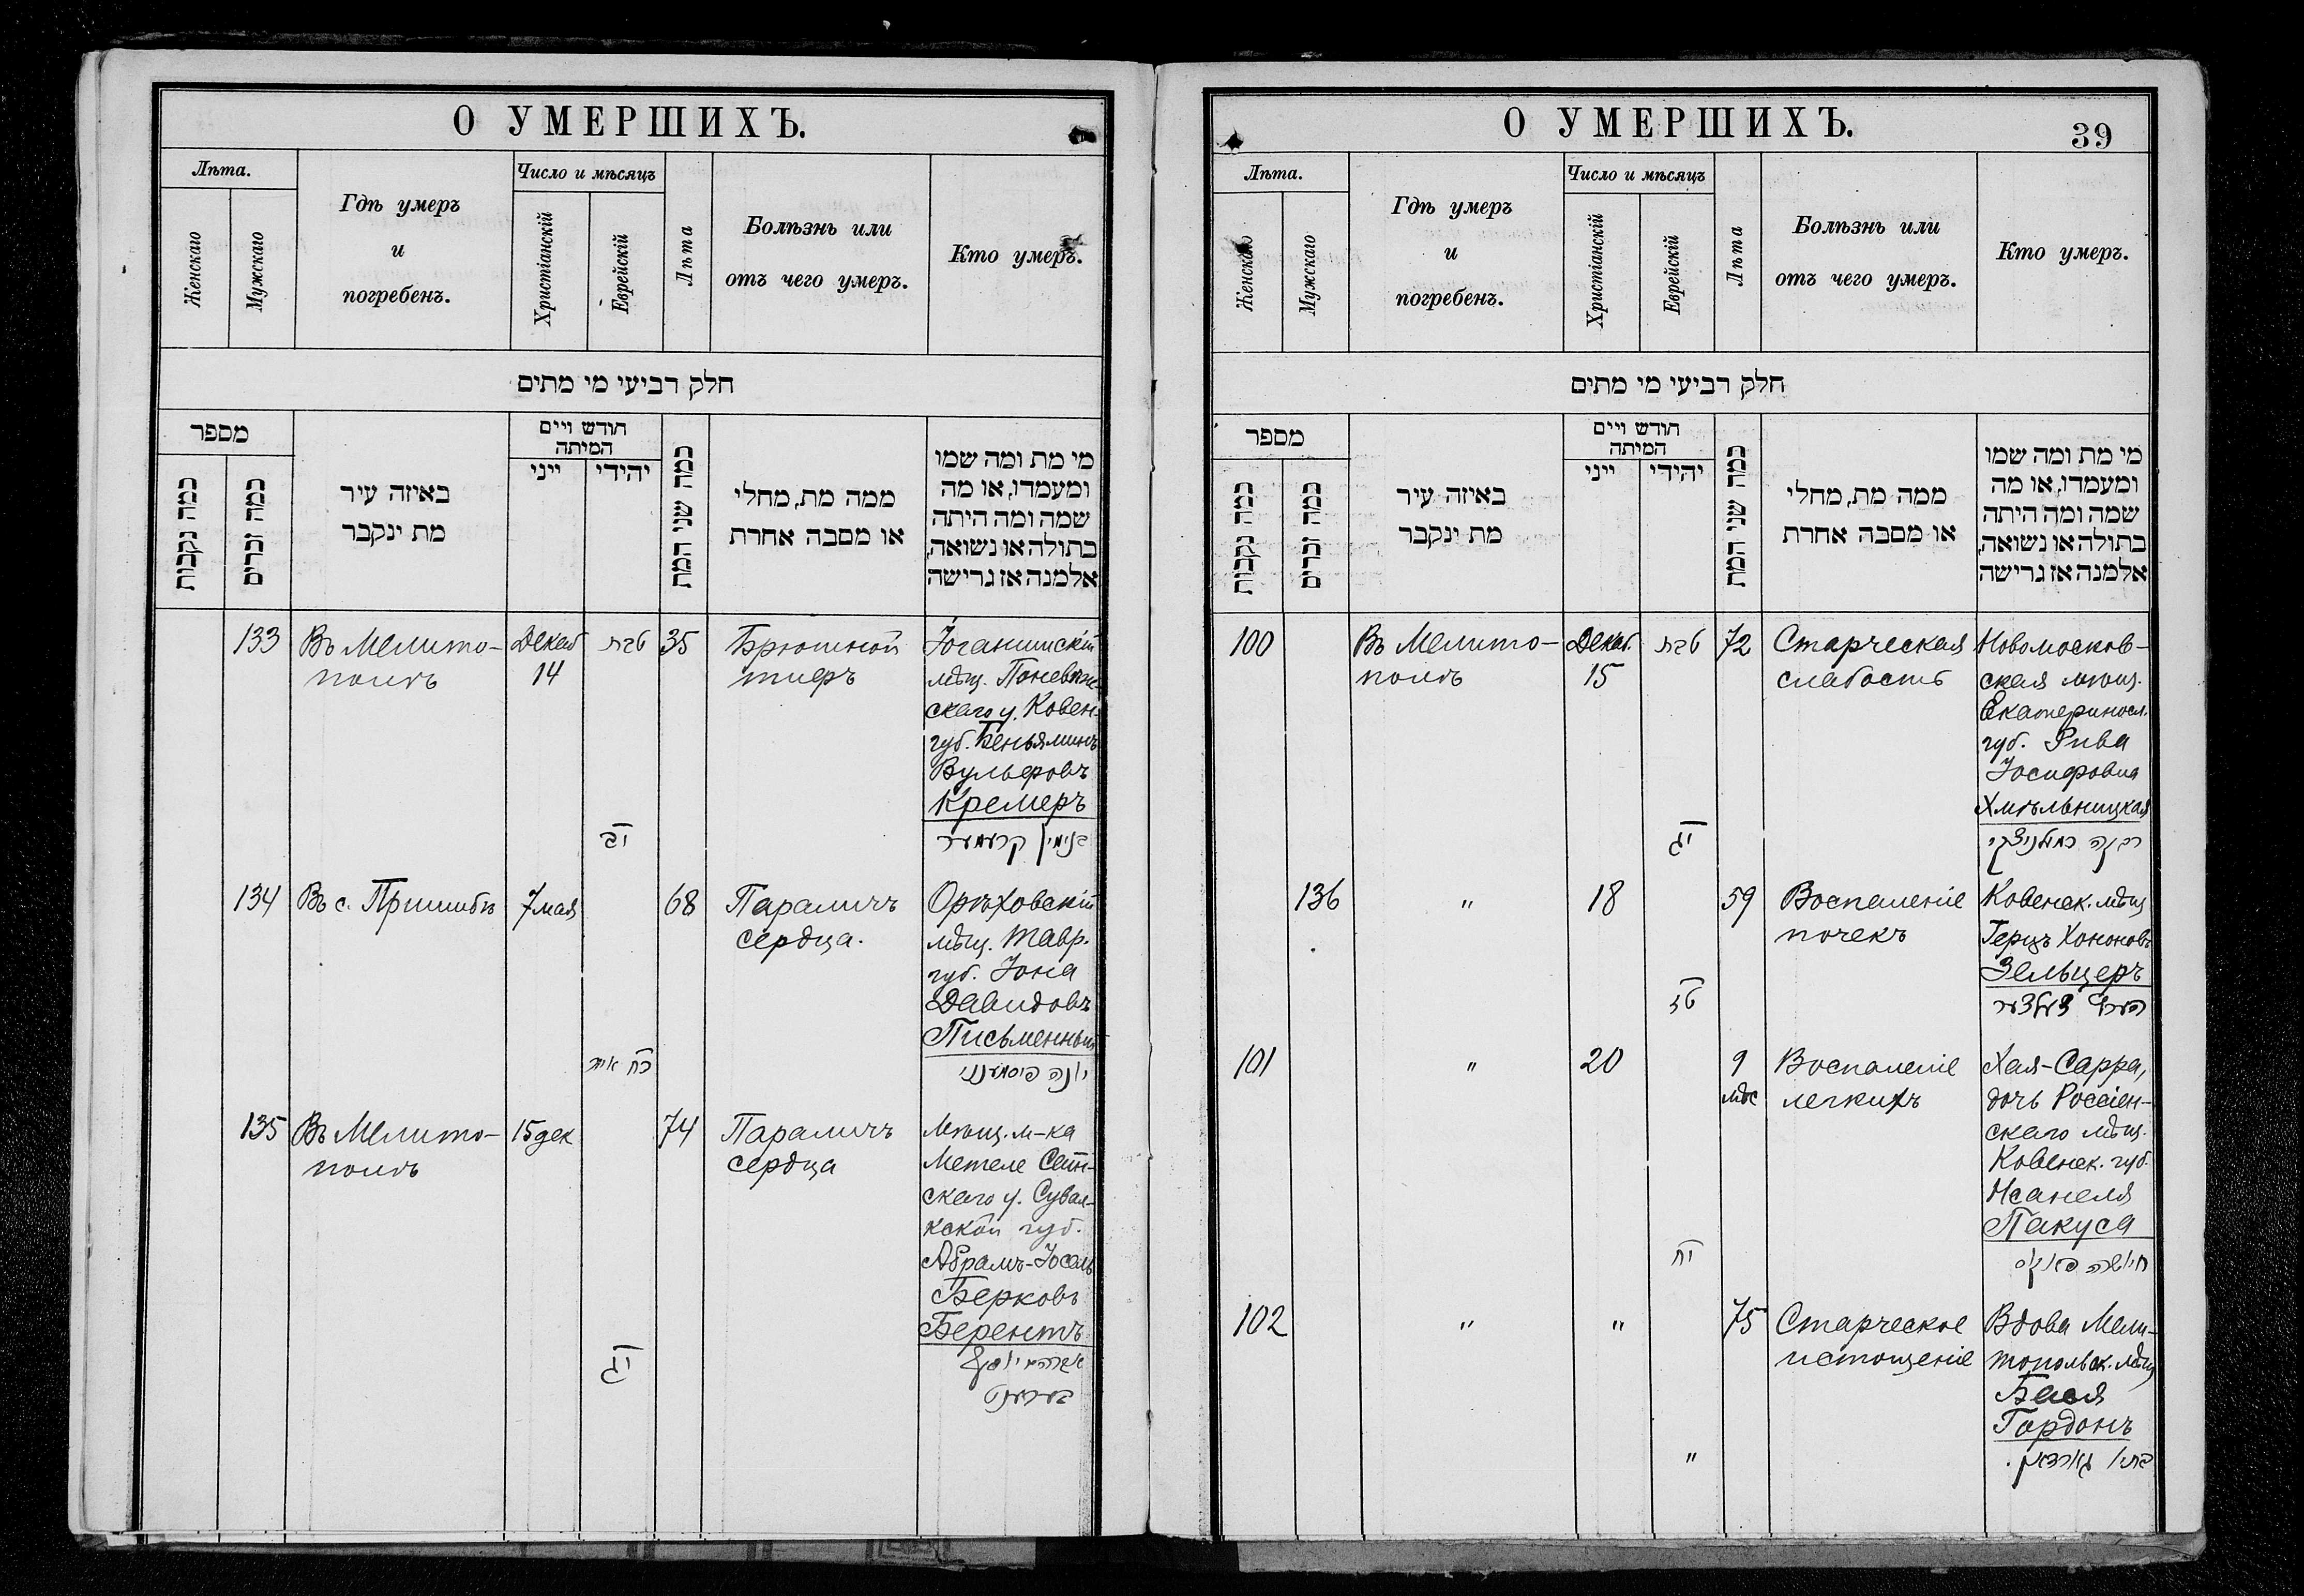 О УМЕРШИХЪ.
Лѣта.
Женскаго
Мужскаго
Гдѣ умеръ
и
погребенъ.
Число и мѣсяцъ
Христіанскій
Еврейскій
Лѣта
Болѣзнь или
отъ чего умеръ.
Кто умеръ.
חלק רביעי מי מתים
מספר
כמה נקבות
כמה זכרים
באיזה עיר
מת ינקבר
חודש ויים
המיתה
ייני
יהידי
כמה שני המת
ממה מת, מחלי
או מסבה אחרת
מי מת ומה שמו
ומעמדו, או מה
שמה ומה היתה
בתולה או נשואה,
אלמנה אז גרישה
133
Въ Мелито-
полѣ
Декаб
14
טבת
יב
35
Брюшной
тифъ
Іоганишскій
мѣщ. Поневѣж-
скаго у. Ковен.
губ. Беньяминъ
Вульфовъ
Кремеръ
בנימין קרעמער
134
Въ с. Пришибѣ
7 мая
כח אייר
68
Параличъ
сердца.
Орѣховскій
мѣщ. Тавр.
губ. Іона
Давидовъ
Письменный
יונה פיסמענני
135
Въ Мелито-
полѣ
15 дек
יג
74
Параличъ
сердца
Мѣщ. м-ка
Метеле Сейн-
скаго у. Сувал-
кской губ.
Абрамъ-Іосель
Берковъ
Берентъ
אברהם יוסף
בערענט
О УМЕРШИХЪ.
39
Лѣта.
Женскаго
Мужскаго
Гдѣ умеръ
и
погребенъ.
Число и мѣсяцъ
Христіанскій
Еврейскій
Лѣта
Болѣзнь или
отъ чего умеръ.
Кто умеръ.
חלק רביעי מי מתים
מספר
כמה נקבות
כמה זכרים
באיזה עיר
מת ינקבר
חודש ויים
המיתה
ייני
יהידי
כמה שני המת
ממה מת, מחלי
או מסבה אחרת
מי מת ומה שמו
ומעמדו, או מה
שמה ומה היתה
בתולה או נשואה,
אלמנה אז גרישה
100
Въ Мелито-
полѣ
Декаб.
15
טבת
יג
72
Старческая
слабость
Новомосков-
ская мѣщ.
Екатериносл.
губ. Рива
Іосифовна
Хмѣльницкая
רבקה כמעלניצקי
136
"
18
טז
59
Воспаленіе
почекъ
Ковенск. мѣщ
Герцъ Хононовъ
Зельцеръ
הערץ זעלצער
101
"
20
יח
9
мѣс
Воспаленіе
легкихъ
Хая-Сарра,
дочь Россіен-
скаго мѣщ.
Ковенск. губ.
Исанеля
Пакуса
חיה שרה פאקוס
102
"
"
"
75
Старческое
истощеніе
Вдова Мели-
топольск. мѣщ
Бася
Гордонъ
באסי גארדאן.